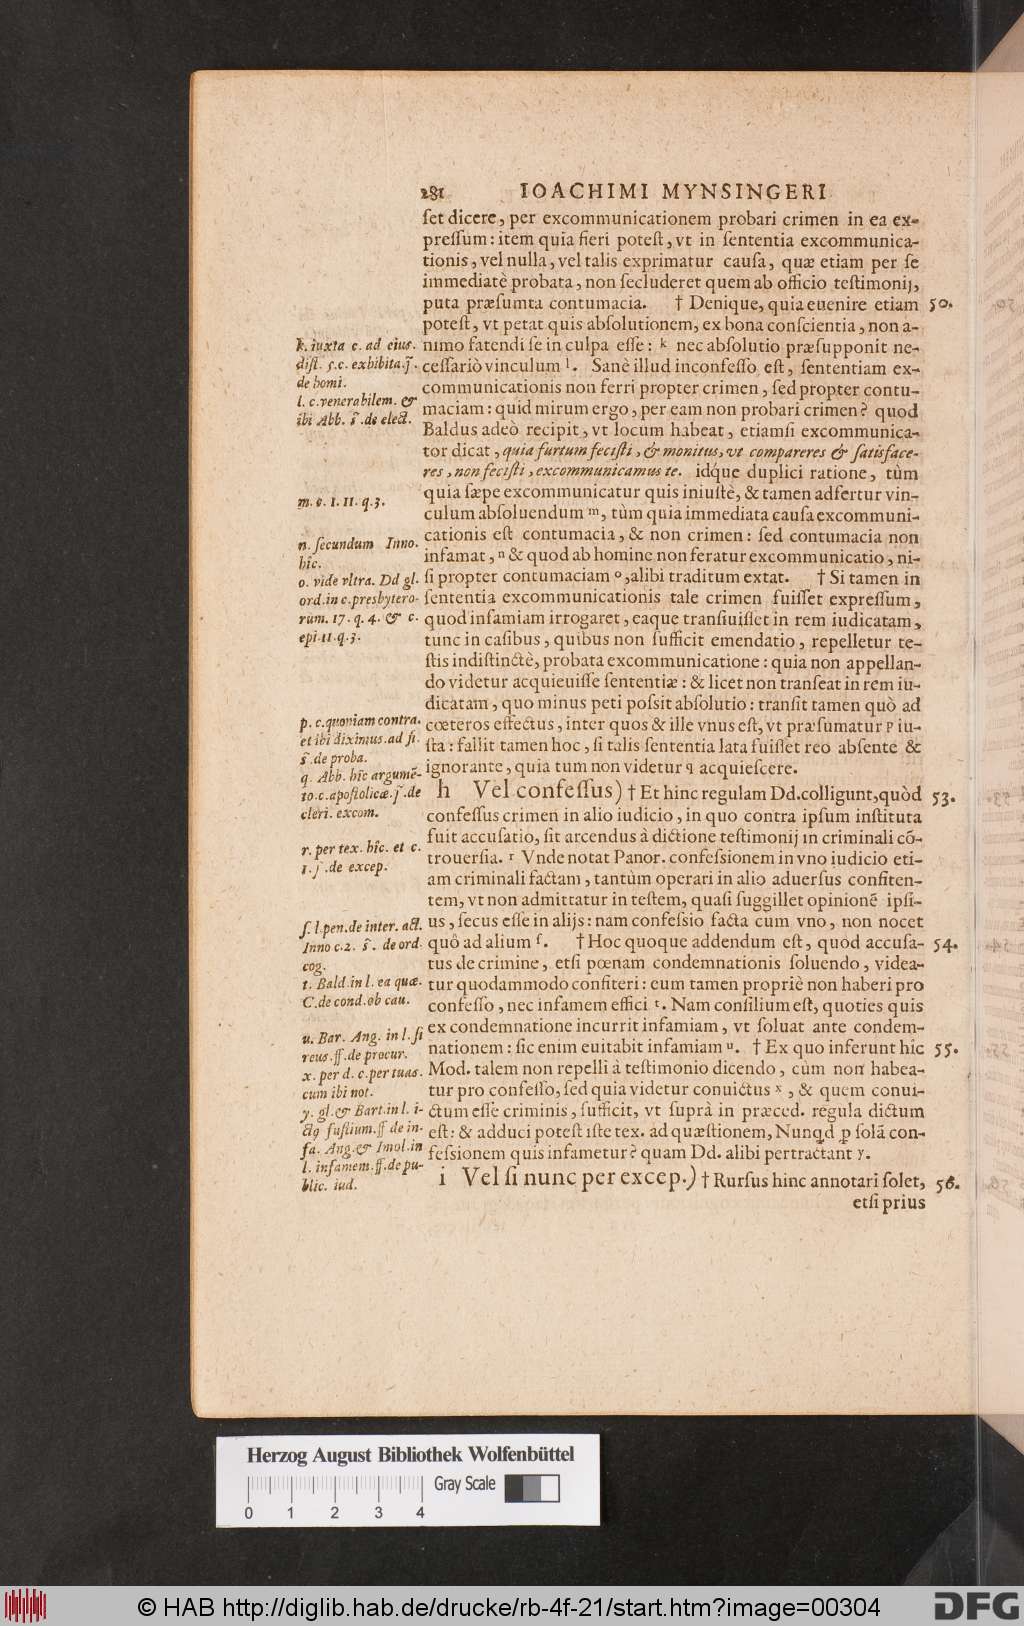 281 IOACHIMI MYNSINGERI
ſet dicere, per excommunicationem probari crimen in ea ex-
preſſum: item quia fieri poteſt, vt in ſententia excommunica-
tionis, vel nulla, vel talis exprimatur cauſa, quæ etiam per ſe
immediatè probata, non ſecluderet quem ab officio teſtimonij,
puta præſumta contumacia. † Denique, quia euenire etiam 50.
poteſt, vt petat quis abſolutionem, ex bona conſcientia, non a-
nimo fatendi ſe in culpa eſſe: k nec abſolutio præſupponit ne-
ceſſariò vinculum l. Sanè illud inconfeſſo eſt, ſententiam ex-
communicationis non ferri propter crimen, ſed propter contu-
maciam: quid mirum ergo, per eam non probari crimen? quod
Baldus adeò recipit, vt locum habeat, etiamſi excommunica-
tor dicat, quia furtum feciſti, & monitus, vt compareres & ſatisface-
res, non feciſti, excommunicamus te. idq́ue duplici ratione, tùm
quia ſæpe excommunicatur quis iniuſtè, & tamen adfertur vin-
culum abſoluendum m, tùm quia immediata cauſa excommuni-
cationis eſt contumacia, & non crimen: ſed contumacia non
infamat, n & quod ab homine non feratur excommunicatio, ni-
ſi propter contumaciam o, alibi traditum extat. † Si tamen in
ſententia excommunicationis tale crimen fuiſſet expreſſum,
quod infamiam irrogaret, eaque tranſiuiſſet in rem iudicatam,
tunc in caſibus, quibus non ſufficit emendatio, repelletur te-
ſtis indiſtinctè, probata excommunicatione: quia non appellan-
do videtur acquieuiſſe ſententiæ: & licet non tranſeat in rem iu-
dicatam, quo minus peti poſsit abſolutio: tranſit tamen quò ad
cœteros effectus, inter quos & ille vnus eſt, vt præſumatur p iu-
ſta: fallit tamen hoc, ſi talis ſententia lata fuiſſet reo abſente &
ignorante, quia tum non videtur q acquieſcere.
h Vel confeſſus) † Et hinc regulam Dd. colligunt, quòd 53.
confeſſus crimen in alio iudicio, in quo contra ipſum inſtituta
fuit accuſatio, ſit arcendus à dictione teſtimonij in criminali cō-
trouerſia. r Vnde notat Panor. confeſsionem in vno iudicio eti-
am criminali factam, tantùm operari in alio aduerſus confiten-
tem, vt non admittatur in teſtem, quaſi ſuggillet opinionē ipſi-
us, ſecus eſſe in alijs: nam confeſsio facta cum vno, non nocet
quô ad alium ſ. † Hoc quoque addendum eſt, quòd accuſa- 54.
tus de crimine, etſi pœnam condemnationis ſoluendo, videa-
tur quodammodo confiteri: eum tamen propriè non haberi pro
confeſſo, nec infamem effici t. Nam conſilium eſt, quoties quis
ex condemnatione incurrit infamiam, vt ſoluat ante condem-
nationem: ſic enim euitabit infamiam u. † Ex quo inferunt hîc 55.
Mod. talem non repelli à teſtimonio dicendo, cùm non habea-
tur pro confeſſo, ſed quia videtur conuictus x, & quem conui-
ctum eſſe criminis, ſufficit, vt ſuprà in præced. regula dictum
eſt: & adduci poteſt iſte tex. ad quæſtionem, Nunqd p ſolā con-
feſsionem quis infametur? quam Dd. alibi pertractant y.
i Vel ſi nunc per excep.) † Rurſus hinc annotari ſolet, 56.
etſi prius
k. iuxta c. ad eius.
diſt. 5. c. exhibita. j̃.
de homi.
l. c. venerabilem. &
ibi Abb. s̃. de elect.
m. c. 1. 11. q. 3.
n. ſecundum Inno.
hîc.
o. vide vltra. Dd gl.
ord. in c. presbytero-
rum. 17. q. 4. & c.
epi. 11. q. 3.
p. c. quoniam contra.
et ibi diximus. ad fi.
s̃. de proba.
q. Abb. hîc argumē-
to. c. apoſtolicæ. j̃. de
cleri. excom.
r. per tex. hîc. et c.
1. j̃. de excep.
ſ. l. pen. de inter. act.
Inno c. 2. s̃. de ord.
cog.
t. Bald. in l. ea quæ.
C. de cond. ob cau.
u. Bar. Ang. in l. ſi
reus. ff. de procur.
x. per d. c. per tuas.
cum ibi not.
y. gl. & Bart. in l. i-
ctq fuſtium. ff de in-
fa. Ang. & Imol. in
l. infamem. ff. de pu-
blic. iud.
Herzog August Bibliothek Wolfenbüttel
Gray Scale
0 1 2 3 4
© HAB http://diglib.hab.de/drucke/rb-4f-21/start.htm?image=00304
DFG